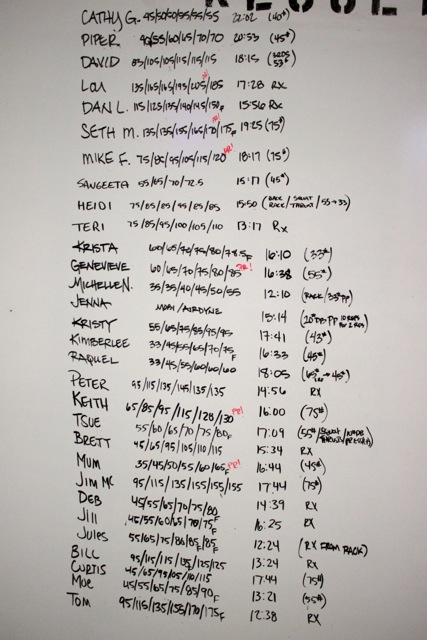 CATHY G. 45/50/50/55/55/55 22:02 (40#)
PIPER 40/55/60/65/70/70 20:53 (45#)
DAVID 85/105/105/115/115/115 18:15
LOU 135/165/165/195/205/185 17:28 RX
DAN L. 115/125/135/140/145/150F 15:56 RX
SETH M. 135/135/155/165/170/175F 19:25 (75#)
MIKE F. 75/85/95/105/115/120 PR! 18:17 (75#)
SANGEETA 55/65/70/72.5 15:17 (45#)
HEIDI 75/85/85/95/85/85 15:50
TERI 75/85/95/100/105/110 13:17 RX
KRISTA 60/65/70/75/80/78.5F 16:10 (33#)
GENEVIEVE 60/65/70/75/80/85 PR! 16:38 (55#)
MICHELLE N. 35/35/40/45/50/55 12:10 (RACK/33#PP)
JENNA MOM/AIRDYNE 15:14
KRISTY 55/65/75/85/95/95 17:41 (43#)
KIMBERLEE 33/45/55/65/70/75F 16:33 (45#)
RAQUEL 33/45/55/60/60/60 18:05
PETER 95/115/135/145/135/135 14:56 RX
KEITH 65/85/95/115/128/130 PR! 16:00 (75#)
TSUE 55/60/65/70/75/80F 17:09
BRETT 45/65/95/105/110/115 15:34 RX
MUM 35/45/50/55/60/65F PR! 16:44 (45#)
JIM MC 95/115/135/155/155/155 17:44 (75#)
DEB 45/55/65/70/75/80 14:39 RX
Jill 45/55/60/65/70/75F 16:25 RX
Jules 55/65/75/80/85/85F 12:24 (RX FROM RACK)
BILL 95/115/115/135/125/125 13:24 RX
CURTIS 45/65/95/105/110/115 17:44 (75#)
Moe 45/55/65/75/85/90F 13:21 (55#)
TOM 95/115/135/155/170/175F 12:38 RX